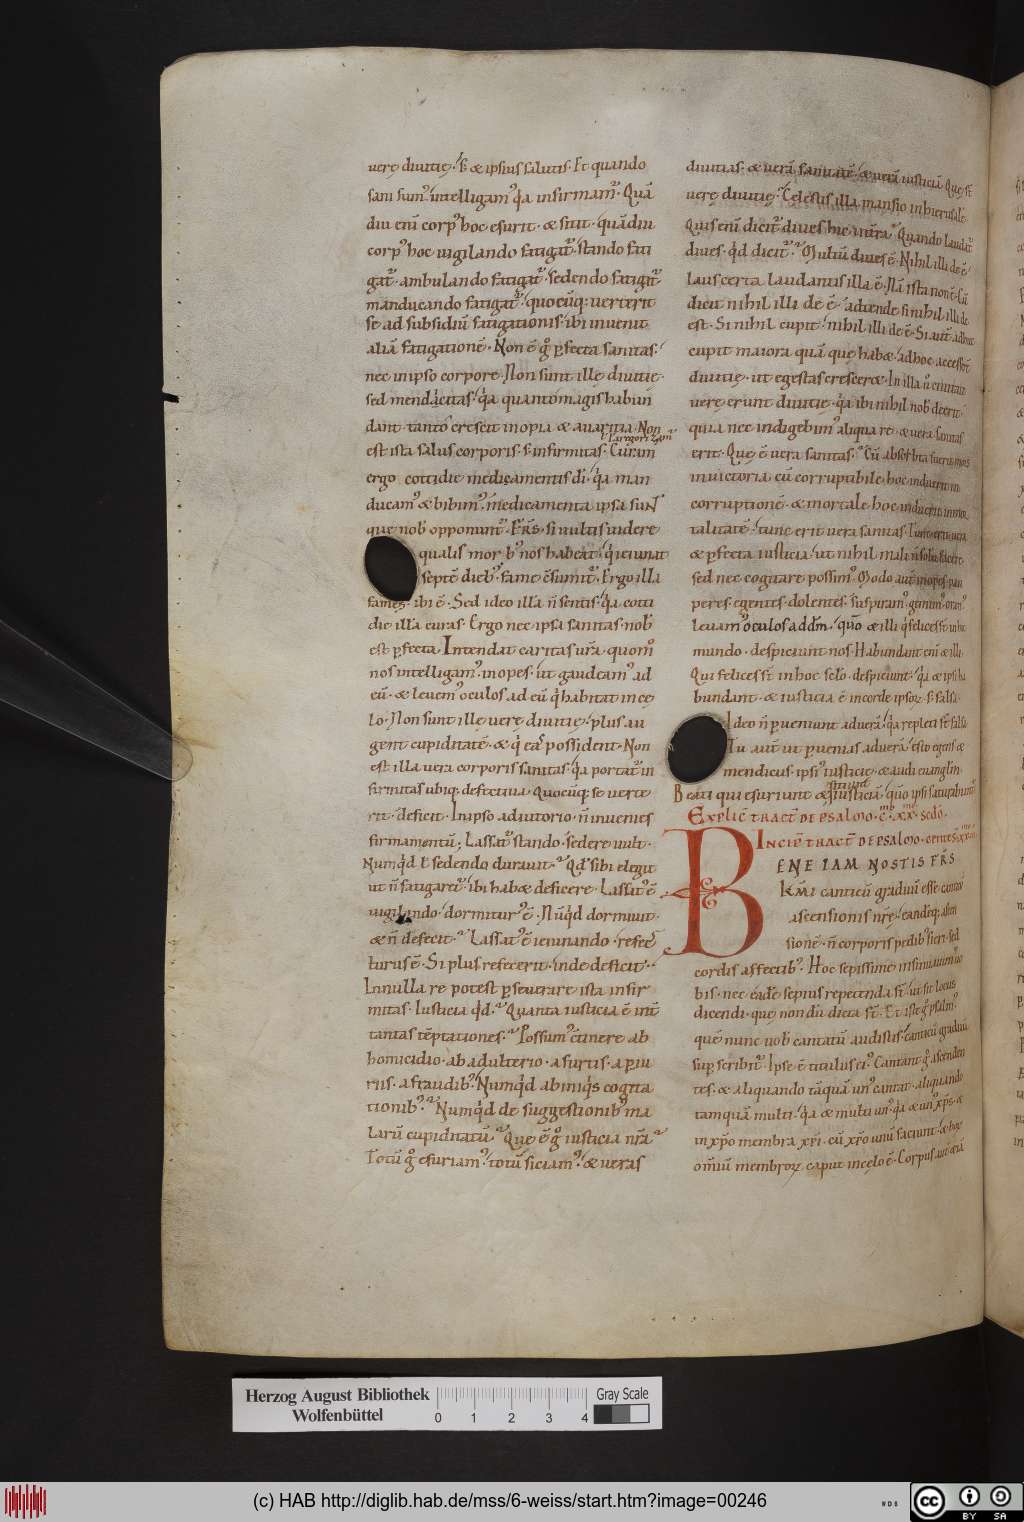 vere diuitie. s; & ipsius salutis. Et quando
sani sum᷒ intelligam᷒ q̇a infirmam᷒. Quā
diu enī corp᷒ hoc esurit. & sitit. quādiu
corp᷒ hoc uigilando fatigat̄. stando fati
gat̄. ambulando fatigat̄. sedendo fatigat̄
manducando fatigat̄. quocūq; uerterit
se ad subsidiū fatigationis. ibi inuenit
aliā fatigationē. Non ē g̊ ꝑfecta sanitas.
nec in ipso corpore. Non sunt ille diuitie.
sed mendicitas. q̇a quanto magis habun
dant. tanto crescit inopia & auaritia. Non
est ista salus corporis. s; infirmitas. Curam
ergo cottidie medicamentis di. q̇a man
ducam᷒ & bibim᷒. medicamenta ipsa sunt
que nob̄ opponunt̄. Fr̄s. si uultis uidere
qualis morb᷒ nos habeat. q̇ ieiunat
septē dieb᷒. fame c̄sumit̄. Ergo illa
fames. ibi ē. Sed ideo illā n̄ sentis. q̇a cotti
die illā curas. Ergo nec ipsa sanitas nob̄
est ꝑfecta. Intendat caritas ur̄a quom̊
nos intelligam᷒ inopes. ut gaudeam᷒ ad
eū. & leuem᷒ oculos ad eū q̇ habitat in ce
lo. Non sunt ille uere diuitie. plus au
gent cupiditatē. & q̇ eas possident. Non
est illa uera corporis sanitas. q̇a portat̄ in
firmitas ubiq; defectiua. Quocūq; se uerte
rit. deficit. In ipso adiutorio. n̄ inuenies
firmamentū; Lassat᷒ stando. sedere uult.
Numq̇d t̄ sedendo durauit? Qd̄ sibi elegit
ut n̄ fatigaret̄. ibi habet deficere. Lassat᷒ ē
uigilando. dormitur᷒ ē. Nūq̇d dormiuit.
& n̄ defecit? Lassat᷒ ē ieiunando. refec
turus ē. Si plus refecerit. inde deficit.
In nulla re potest ꝑseuerare ista infir
mitas. Iusticia q̇d? Quanta iusticia ē int̄
tantas tēptationes? Possum᷒ c̄tinere ab
homicidio. ab adulterio. a furtis. a ꝑiu
riis. a fraudib᷒. Numq̇d ab iniq̇s cogita
tionib᷒? Numq̇d de suggestionib᷒ ma
larū cupiditatū? Que ē g̊ iusticia nr̄a?
Totū g̊ esuriam᷒. totū siciam᷒. & ueras
diuitias. & uerā sanitatē. & uerā iusticiā. Que st̄
uere diuitie? Celestis illa mansio in hierusalē.
Quis enī dicit̄ diues hic in tr̄a? Quando laudat̄
diues. q̇d dicit̄? Multū diues ē. Nihil illi de ē.
Laus certa laudantis illa ē. Nā ista non ē. Cū
dicit nihil illi de ē. adtende si nihil illi de
est. Si nihil cupit. nihil illi de ē. Si aut̄ adhuc
cupit maiora quā que habet. ad hoc accesser̄
diuitie. ut egestas cresceret. In illa u̇ ciuitate
uere erunt diuitie. q̇a ibi nihil nob̄ deerit.
quia nec indigebim᷒ aliqua re. & uera sanitas
erit. Que ē uera sanitas? Cū absorbta fuerit mors
in uictoria. cū corruptibile hoc induerit in
corruptionē. & mortale hoc induerit inmor
talitatē. tunc erit uera sanitas. Tunc erit uera
& ꝑfecta iusticia. ut nihil mali n̄ solū facere.
sed nec cogitare possim᷒. Modo aut̄ inopes. pau
peres. egentes. dolentes. suspiram᷒. gemim᷒. oram᷒.
leuam᷒ oculos ad dm̄. q̄uo & illi q̇ felices st̄ in hoc
mundo. despiciunt nos. Habundant enī & illi.
Qui felices st̄ in hoc sc̄lo. despiciunt. q̇a & ipsi ha
bundant. & iusticia ē in corde ipsoꝝ. s; falsa.
Ideo n̄ ꝑueniunt ad uerā. q̇a repleti st̄ falsa.
Tu aut̄ ut ꝑuenias ad uerā. esto egens &
mendicus ipsi᷒ iusticie. & audi euanglm̄.
Beati qui esuriunt & sitiunt iusticiā. q̄uo ipsi saturabunt̄.
EXPLIC̄ TRACT̄ DE PSALMO. C. XX. scd̊o.
INCIP̄ TRACT̄ DE PSALMO. centes. xx
BENE IAM NOSTIS FR̄S
KM̄I canticū graduū esse canticū
ascensionis nr̄e. eandēq; ascen
sionē. n̄ corporis pedib᷒ fieri. sed
cordis affectib᷒. Hoc sepissime insinuauim᷒ uo
bis. nec eadē sepius repetenda st̄. ut sit locus
dicendi. que non dū dicta st̄. Et iste g̊ psalm᷒.
quē nunc uob̄ cantatū audistis. canticū graduū
suprscribit̄. Ipse ē titulus ei᷒. Cantant g̊ ascenden
tes. & aliquando tāquā un᷒ cantat. aliquando
tamquā multi. q̇a & multi un᷒. q̇a & un᷒ xp̄s. &
in xp̄o membra xp̄i. cū xp̄o unū faciunt. & hoꝝ
om̄iū membroꝝ caput in celo ē. Corpus aut̄ & si ā
Herzog August Bibliothek
Wolfenbüttel
0 1 2 3 4
Gray Scale
(c) HAB http://diglib.hab.de/mss/6-weiss/start.htm?image=00246
WDB
cc
BY SA